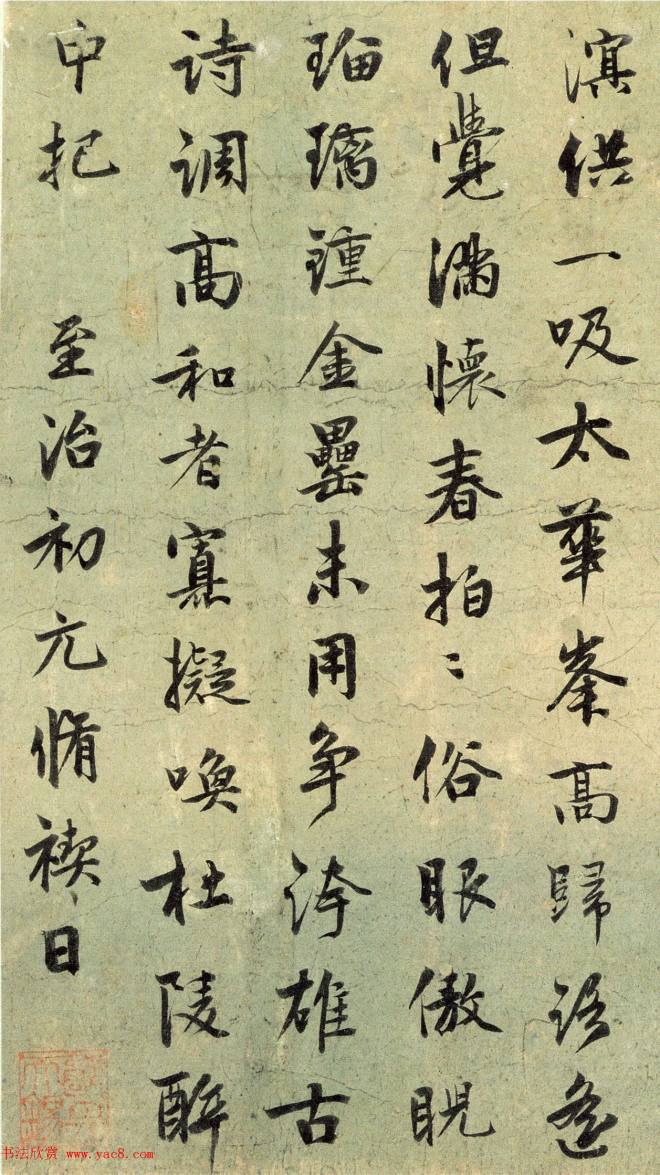 溟供一吸太華峯高歸
但覺滿懷春拍〻俗眼傲睨
瑠璃鍾金罍未用爭誇雄古
詩調高和者寡擬喚杜陵醉
中把 至治初元脩禊日
书法欣赏 www.yac8.com